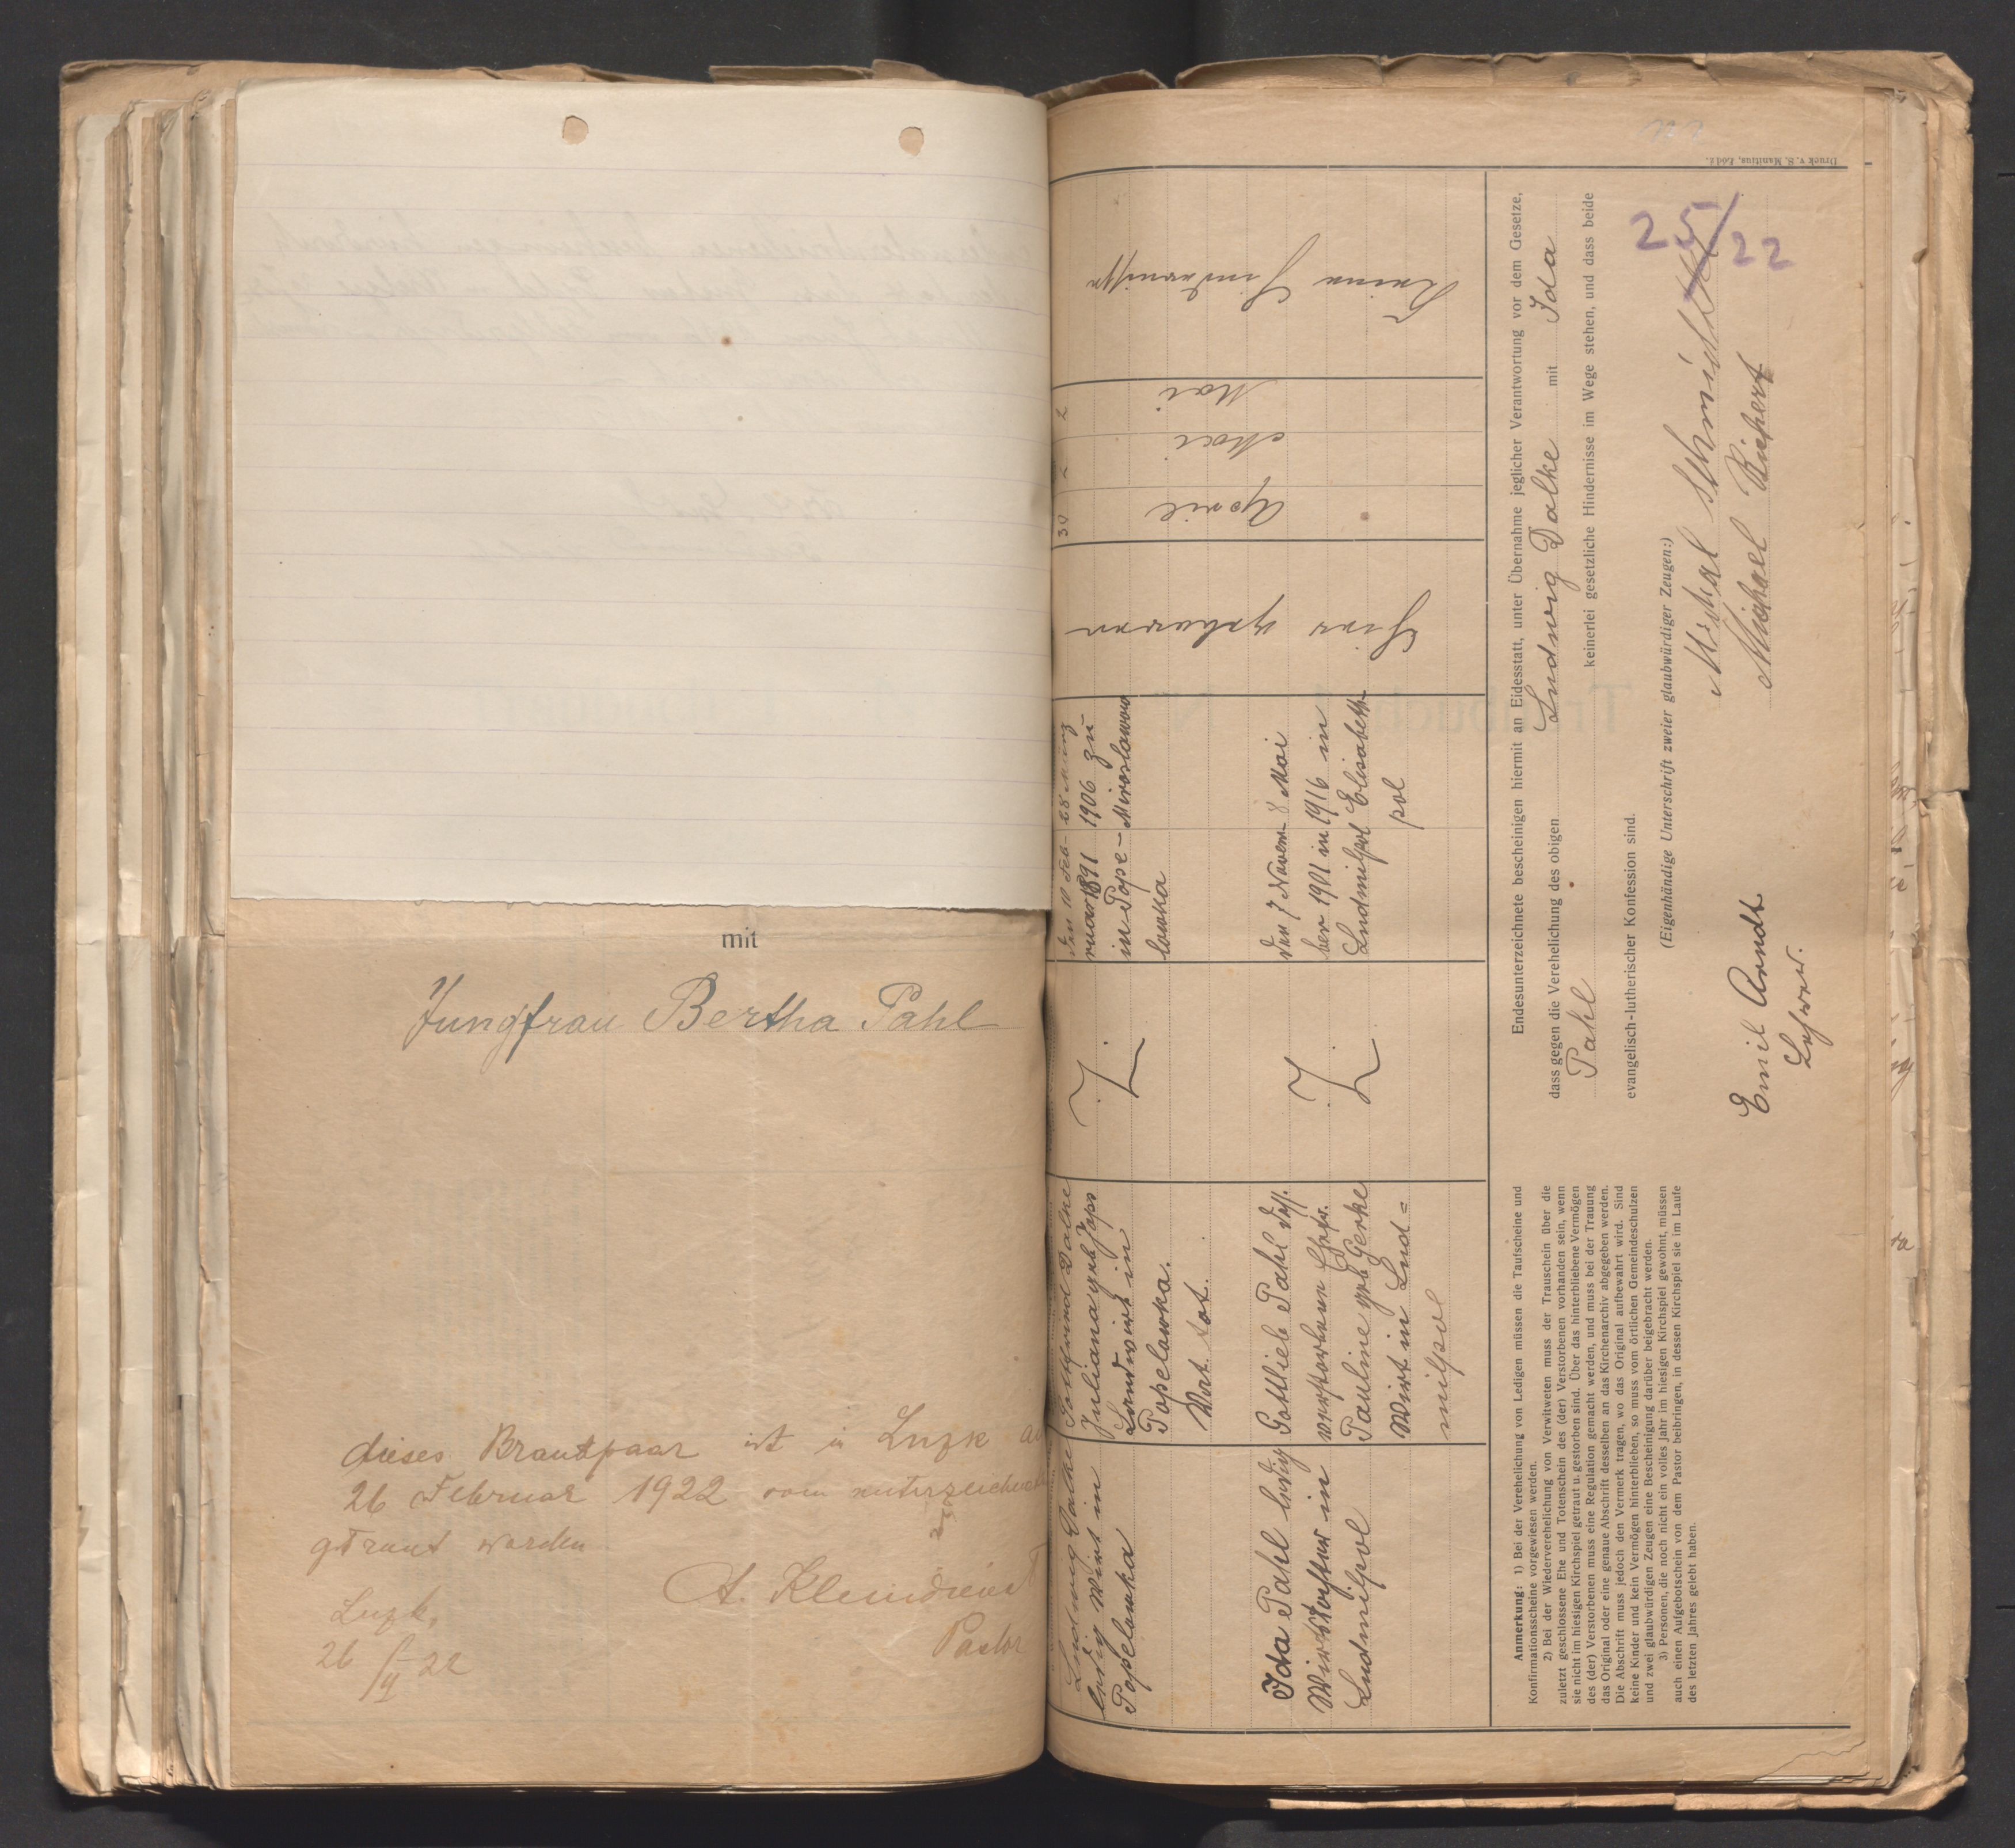 mit
Jungfrau Bertha Pahl
dieses Brautpaar ist in Luzk
26 Februar 1922 vom unterzeichneten
getraut worden
A. Kleindienst
Pastor
Luzk,
26/II 22
Druck v. S. Manitius, Łódź.
25/22
Ludwig Dalke
ledig Wirt in
Popelowka
Gottfried Dalke
Juliana geb Japs
Landwirt in
Popelowka.
Vat. tot.
Den 10 Feb-
ruar 1891
in Pope-
lowka
28 März
1906 zu
Miroslawow
Hier geboren
30 April
Mai
Mai
Keine Hindernisse
Ida Pahl ledig
Wirtstochter in
Ludmilpol
Gottlieb Pahl dess.
verstorbenen Ehefr.
Pauline geb Gerke
Wirt in Lud=
milpol
den 7 Novem-
ber 1901 in
Ludmilpol
8 Mai
1916 in
Elisabeth-
pol
Endesunterzeichnete bescheinigen hiermit an Eidesstatt, unter Übernahme jeglicher Verantwortung vor dem Gesetze,
dass gegen die Verehelichung des obigen Ludwig Dalke mit Ida
Pahl keinerlei gesetzliche Hindernisse im Wege stehen, und dass beide
evangelisch-lutherischer Konfession sind.
(Eigenhändige Unterschrift zweier glaubwürdiger Zeugen:)
Michael Schmidtke
Michael Rückert
Emil Arndt
Lehrer.
Anmerkung: 1) Bei der Verehelichung von Ledigen müssen die Taufscheine und
Konfirmationsscheine vorgewiesen werden.
2) Bei der Wiederverehelichung von Verwitweten muss der Trauschein über die
zuletzt geschlossene Ehe und Totenschein des (der) Verstorbenen vorhanden sein, wenn
sie nicht im hiesigen Kirchspiel getraut u. gestorben sind. Über das hinterbliebene Vermögen
des (der) Verstorbenen muss eine Regulation gemacht werden, und muss bei der Trauung
das Original oder eine genaue Abschrift desselben an das Kirchenarchiv abgegeben werden.
Die Abschrift muss jedoch den Vermerk tragen, wo das Original aufbewahrt wird. Sind
keine Kinder und kein Vermögen hinterblieben, so muss vom örtlichen Gemeindeschulzen
und zwei glaubwürdigen Zeugen eine Bescheinigung darüber beigebracht werden.
3) Personen, die noch nicht ein volles Jahr im hiesigen Kirchspiel gewohnt, müssen
auch einen Aufgebotschein von dem Pastor beibringen, in dessen Kirchspiel sie im Laufe
des letzten Jahres gelebt haben.